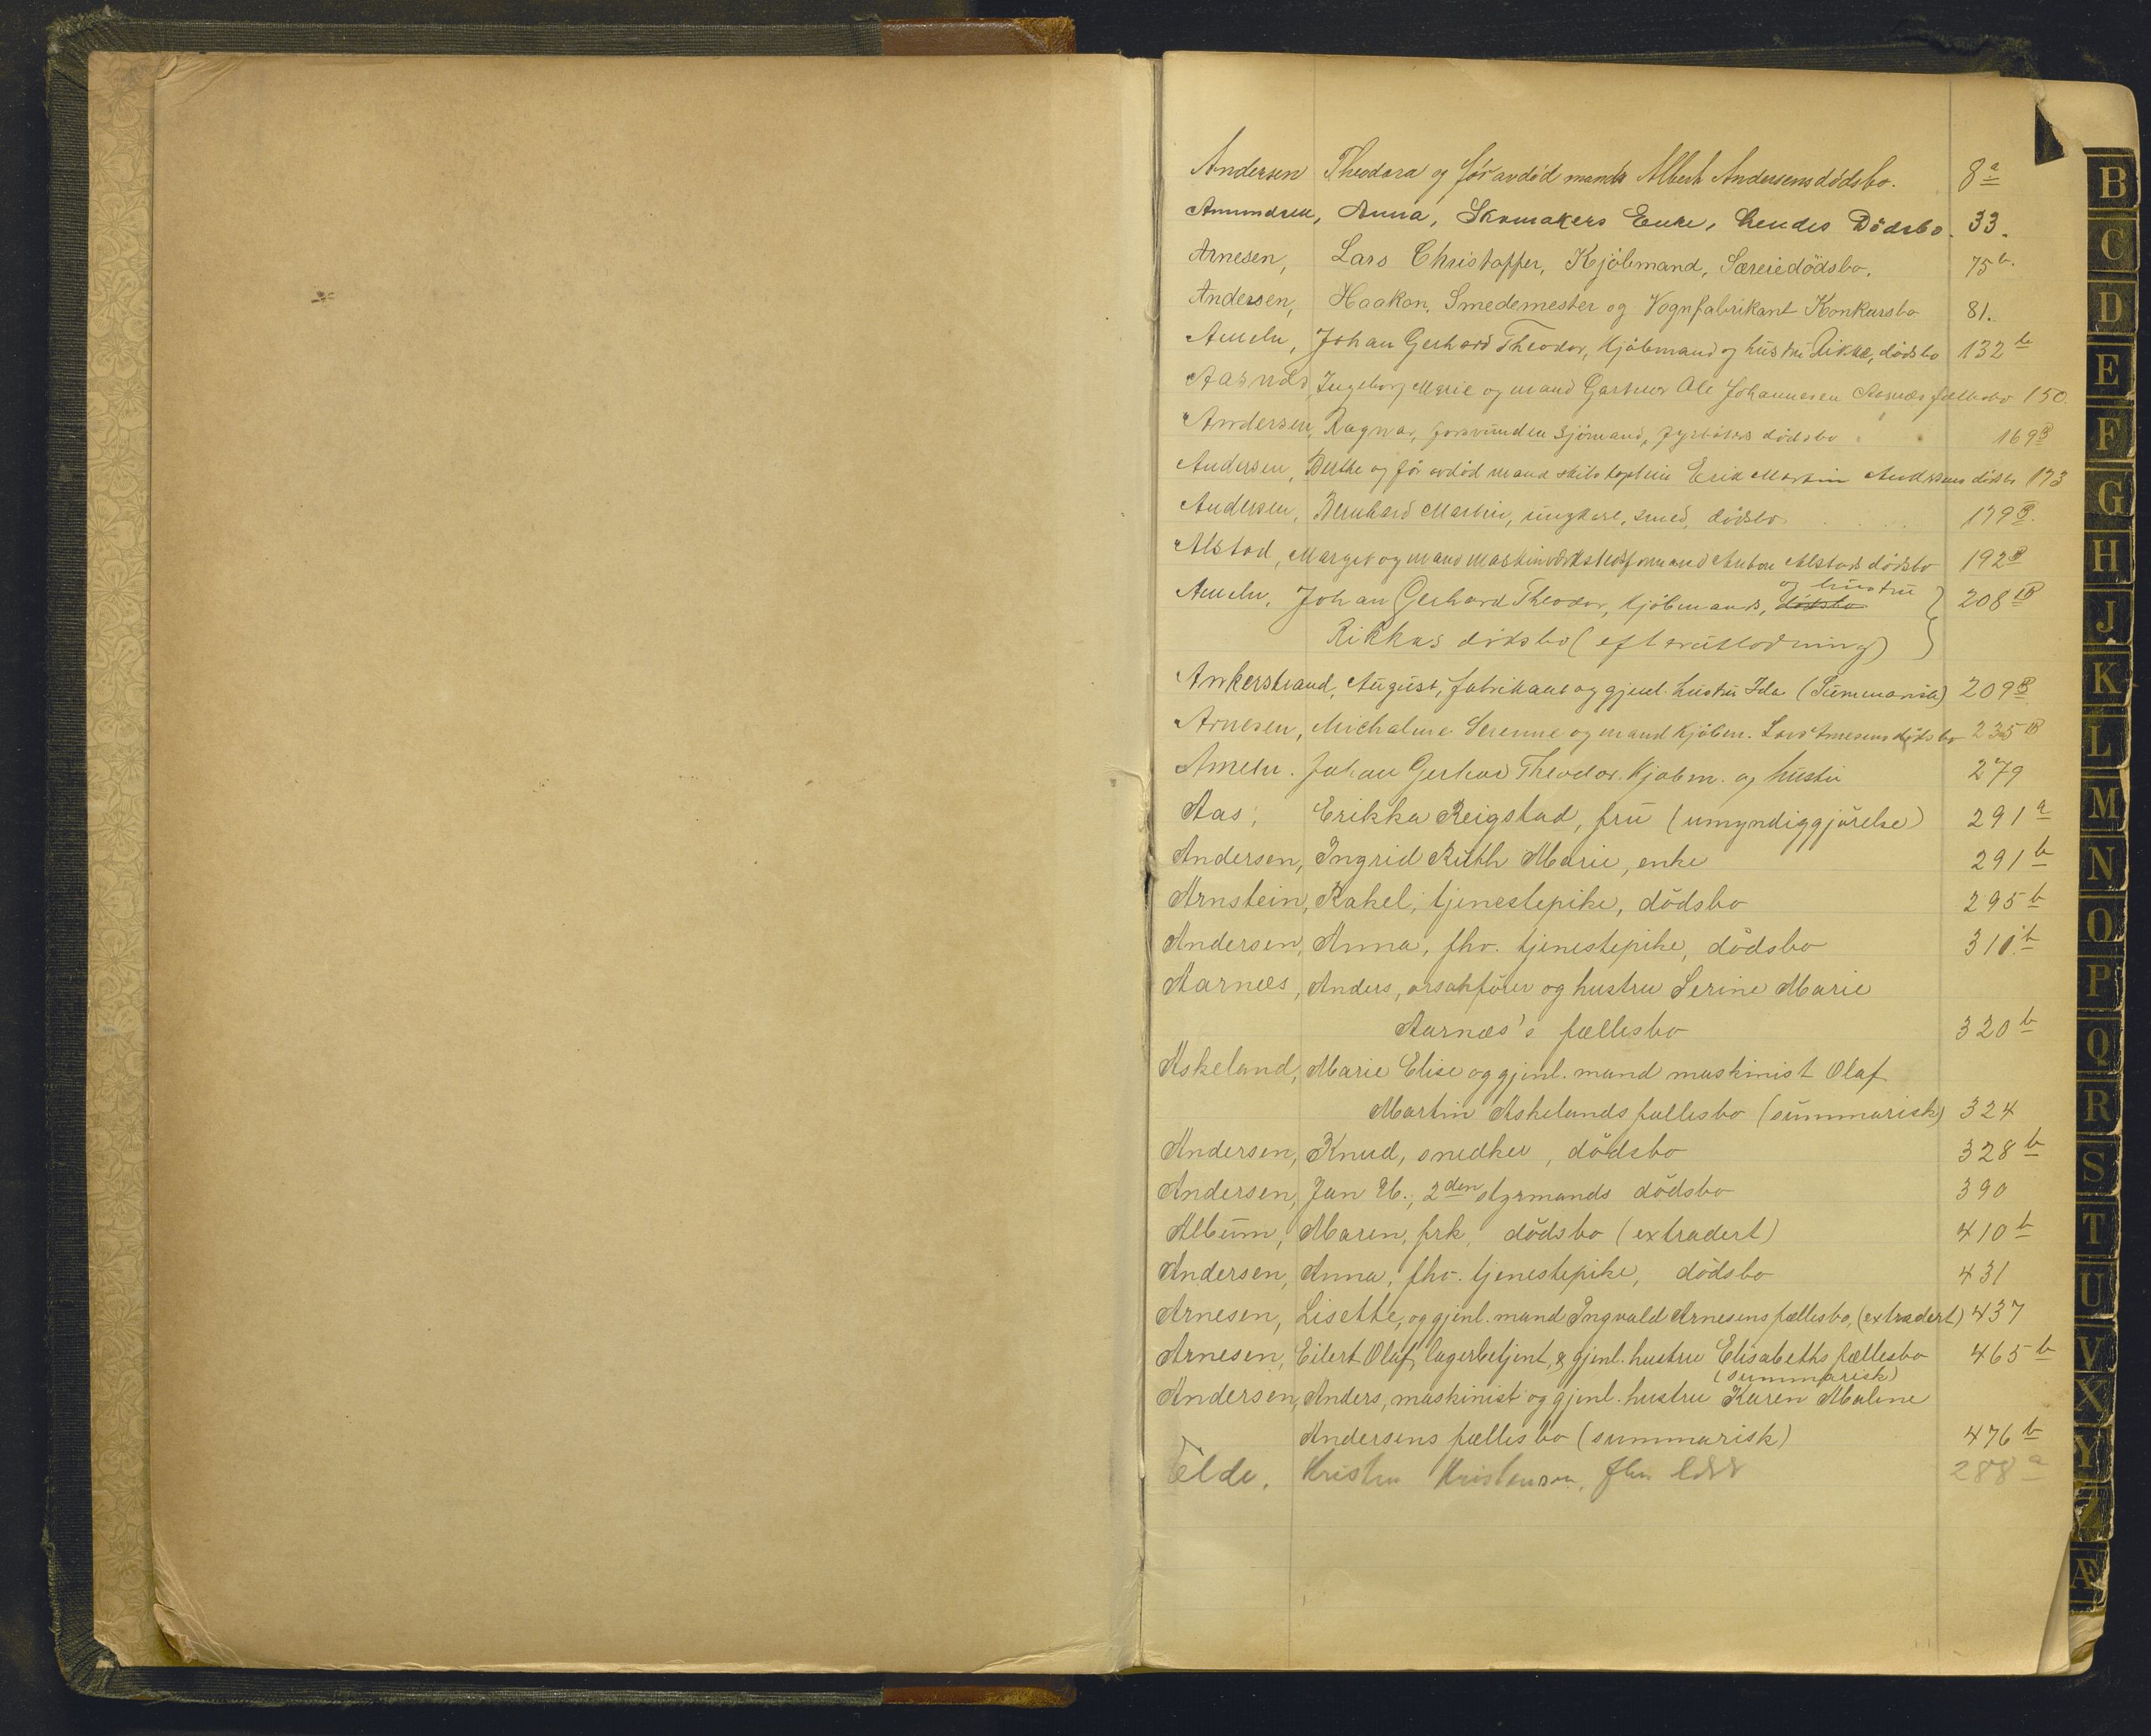 Andersen Theodora og før avdød mands Albert Andersens dödsbo. 8 a
Amundsen, Anna, Skomakers Enke, hendes Dödsbo. 33.
Arnesen, Lars Christoffer, Kjöbmand, Særeiedödsbo. 75 b.
Andersen, Haakon, Smedemester og Vognfabrikant Konkursbo 81.
Ameln, Johan Gerhard Theodor, Kjöbmand og hustru Rikke, dödsbo 132 b
Aasnæs, Ingeborg Marie og mand Gartner Ole Johannesen Aasnæs fællesbo 150.
Andersen, Ragnar, forsvunden sjömand, fyrböters dödsbo 169 B
Andersen, Berthe og för avdöd mand skibskaptein Erik Martin Andersens dödsbo 173
Andersen, Bernhard Martin, ungkarl, smed, dödsbo 179 B.
Alstad, Marget og mand maskinverkstedsformand Anton Alstads dödsbo 192 B
og hustru
Ameln, Johan Gerhard Theodor, Kjöbmands, dödsbo 208 B
Rikkes dödsbo (efterutlodning)
Ankerstrand, August, fabrikant og gjenl. hustru Ida (Summarisk) 209 B
Arnesen, Michaline Serenne og mand Kjöbm. Lars Arnesens dödsbo 235 B
Ameln. Johan Gerhard Theodor. Kjøbm. og hustru 279
Aas, Erikka Reigstad, fru (umyndiggjörelse) 291 a
Andersen, Ingrid Ruth Marie, enke 291 b
Arnstein, Rakel, tjenestepike, dödsbo 295 b
Andersen, Anna, fhv. tjenestepike, dödsbo 311 b
Aarnæs, Anders, orsakförer og hustru Serine Marie
Aarnæs's fællesbo 320 b
Askeland, Marie Elise og gjenl. mand maskinist Olaf
Martin Askelands fællesbo (summarisk) 324
Andersen, Knud, snedker, dödsbo 328 b
Andersen, Jan H., 2den styrmands dödsbo 390
Album, Maren, frk, dödsbo (extradert) 410 b
Andersen, Anna, fhv. tjenestepike, dödsbo 431
Arnesen, Lisette, og gjenl. mand Ingvald Arnesens fællesbo, (extradert) 437
Arnesen, Eilert Olaf, lagerbetjent, & gjenl. hustru Elisabeths fællesbo 465 b
(summarisk)
Andersen, Anders, maskinist og gjenl. hustru Karen Malene
Andersens fællesbo (summarisk) 476 b
Kristen Kristensen, 288 a
B
C
D
E
F
G
H
J
K
L
M
N
O
P
Q
R
S
T
U
V
X
Y
Z
Æ